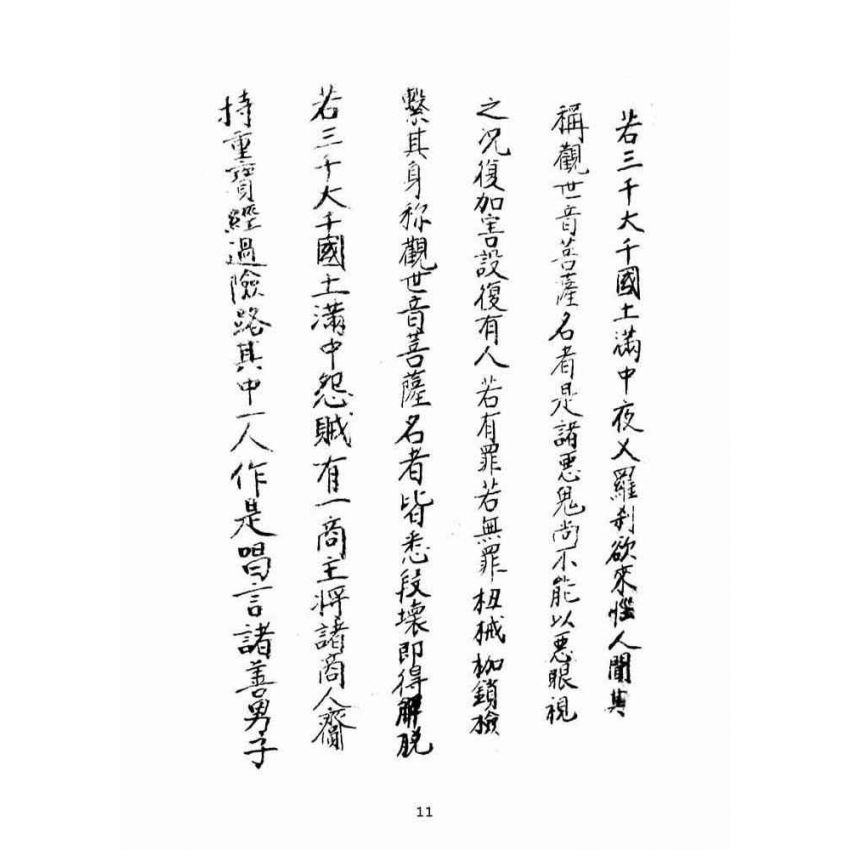 若三千大千國土滿中夜乂羅剎欲來惱人聞其
稱觀世音菩薩名者是諸惡鬼尚不能以惡眼視
之況復加害設復有人若有罪若無罪杻械枷鎖檢
繫其身称觀世音菩薩名者皆悉段壞即得解脫
若三千大千國土滿中怨賊有一商主將諸商人齎
持重寶經過險路其中一人作是唱言諸善男子
11